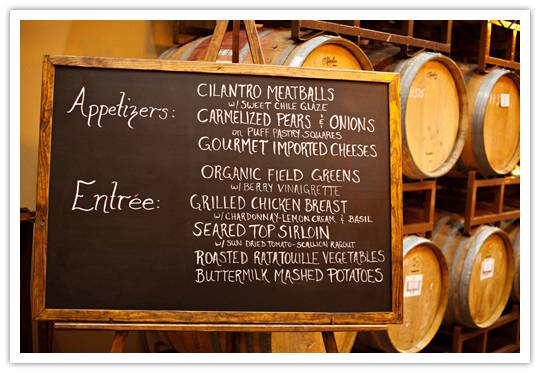 Appetizers:
CILANTRO MEATBALLS
W/ SWEET CHILE GLAZE
CARMELIZED PEARS & ONIONS
on PUFF PASTRY SQUARES
GOURMET IMPORTED CHEESES
Entrée:
ORGANIC FIELD GREENS
W/ BERRY VINAIGRETTE
GRILLED CHICKEN BREAST
W/ CHARDONNAY-LEMON CREAM & BASIL
SEARED TOP SIRLOIN
W/ SUN DRIED TOMATO-SCALLION RAGOUT
ROASTED RATATOUILLE VEGETABLES
BUTTERMILK MASHED POTATOES